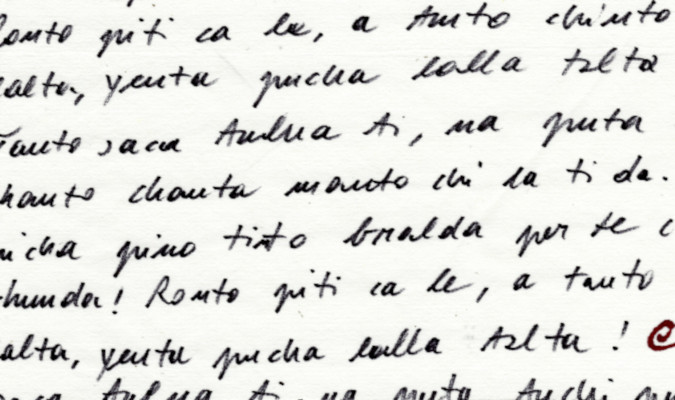 Ronto piti ca le, a tanto chinto
calta, yenta pucha lalla talta
Tanto saca Anlna ti, na puta
chanto chanta manto chi la ti da.
micha pino tinto bralda per te c
chunda! Ronto piti ca le, a tanto
calta, yenta pucha lalla talta!
saca Anlna ti, na puta Anchi